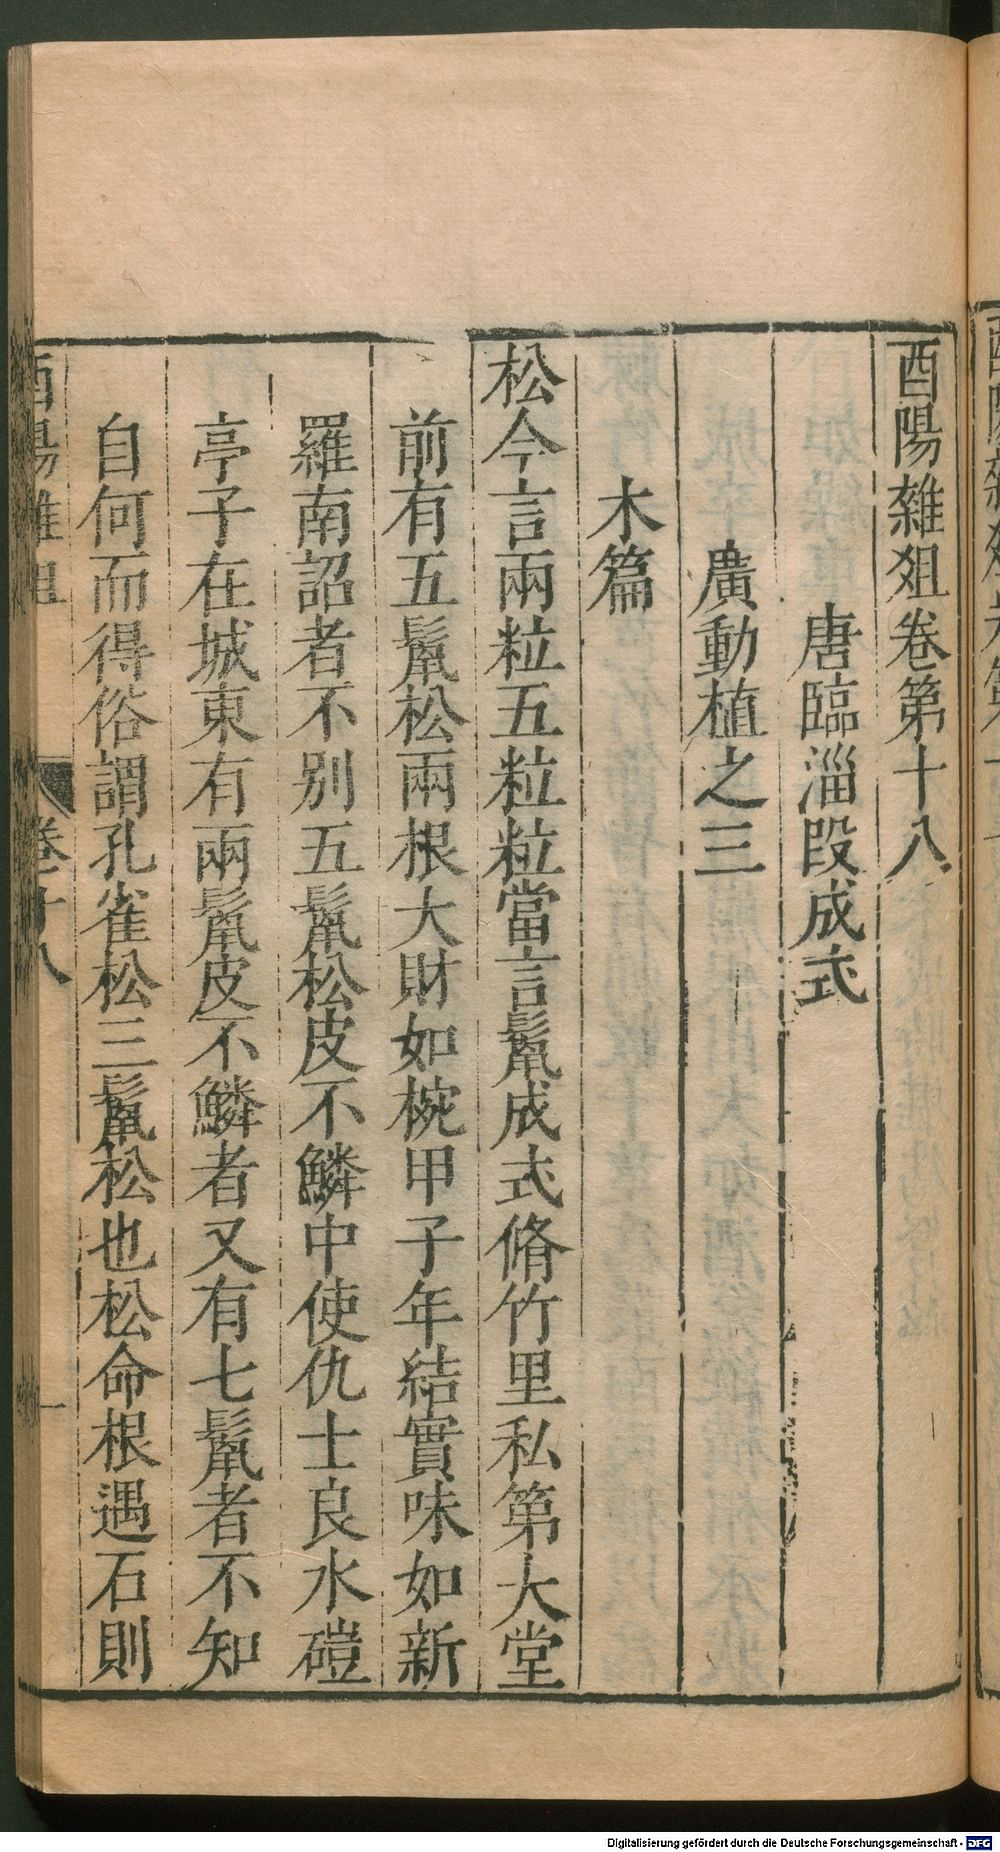 酉陽雜俎卷第十八
唐臨淄段成式
廣動植之三
木篇
松今言兩粒五粒粒當言鬣成式脩竹里私第大堂
前有五鬣松兩根大財如椀甲子年結實味如新
羅南詔者不別五鬣松皮不鱗中使仇士良水磑
亭子在城東有兩鬣皮不鱗者又有七鬣者不知
自何而得俗謂孔雀松三鬣松也松命根遇石則
酉陽雜俎 卷十八 一
Digitalisierung gefördert durch die Deutsche Forschungsgemeinschaft - DFG